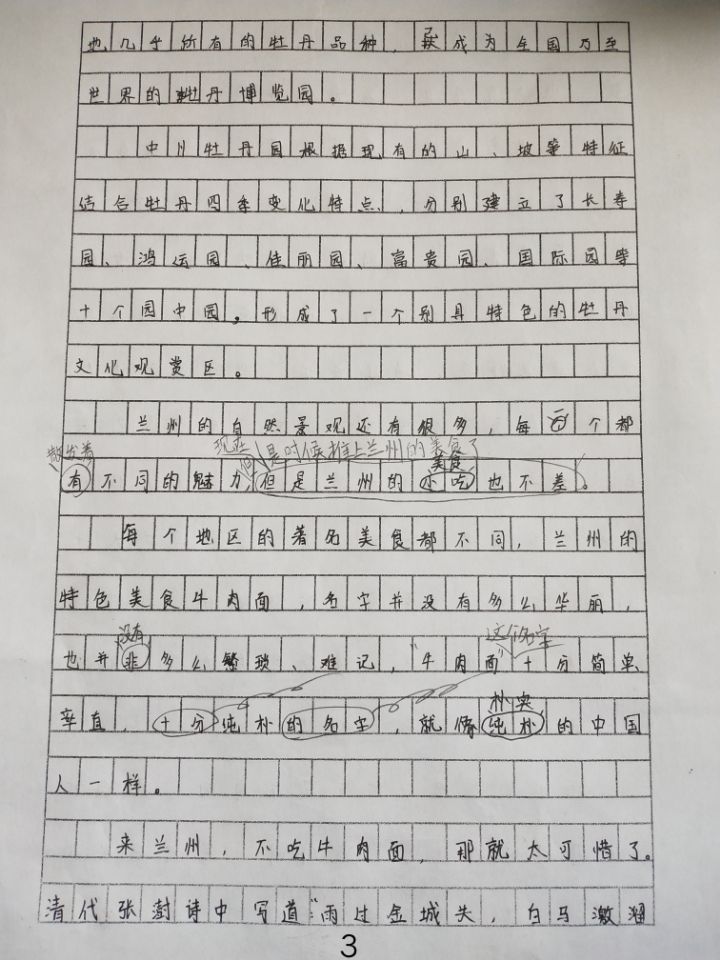 地几乎所有的牡丹品种，成为全国乃至
世界的牡丹博览园。
中川牡丹园根据现有的山、坡等特征
结合牡丹四季变化特点，分别建立了长寿
园、鸿运园、佳丽园、富贵园、国际园等
十个园中园。形成了一个别具特色的牡丹
文化观赏区。
兰州的自然景观还有很多，每个都
散发着
现在是时候推上兰州的美食了
美食
有不同的魅力,但是兰州的小吃也不差。
每个地区的著名美食都不同，兰州的
特色美食牛肉面，名字并没有多么华丽，
没有
这个名字
也并非多么繁琐、难记，“牛肉面”十分简单、
朴实
率直，十分纯朴的名字，就像纯朴的中国
人一样。
来兰州，不吃牛肉面，那就太可惜了。
清代张澍诗中写道：“雨过金城头，白马激溜
3